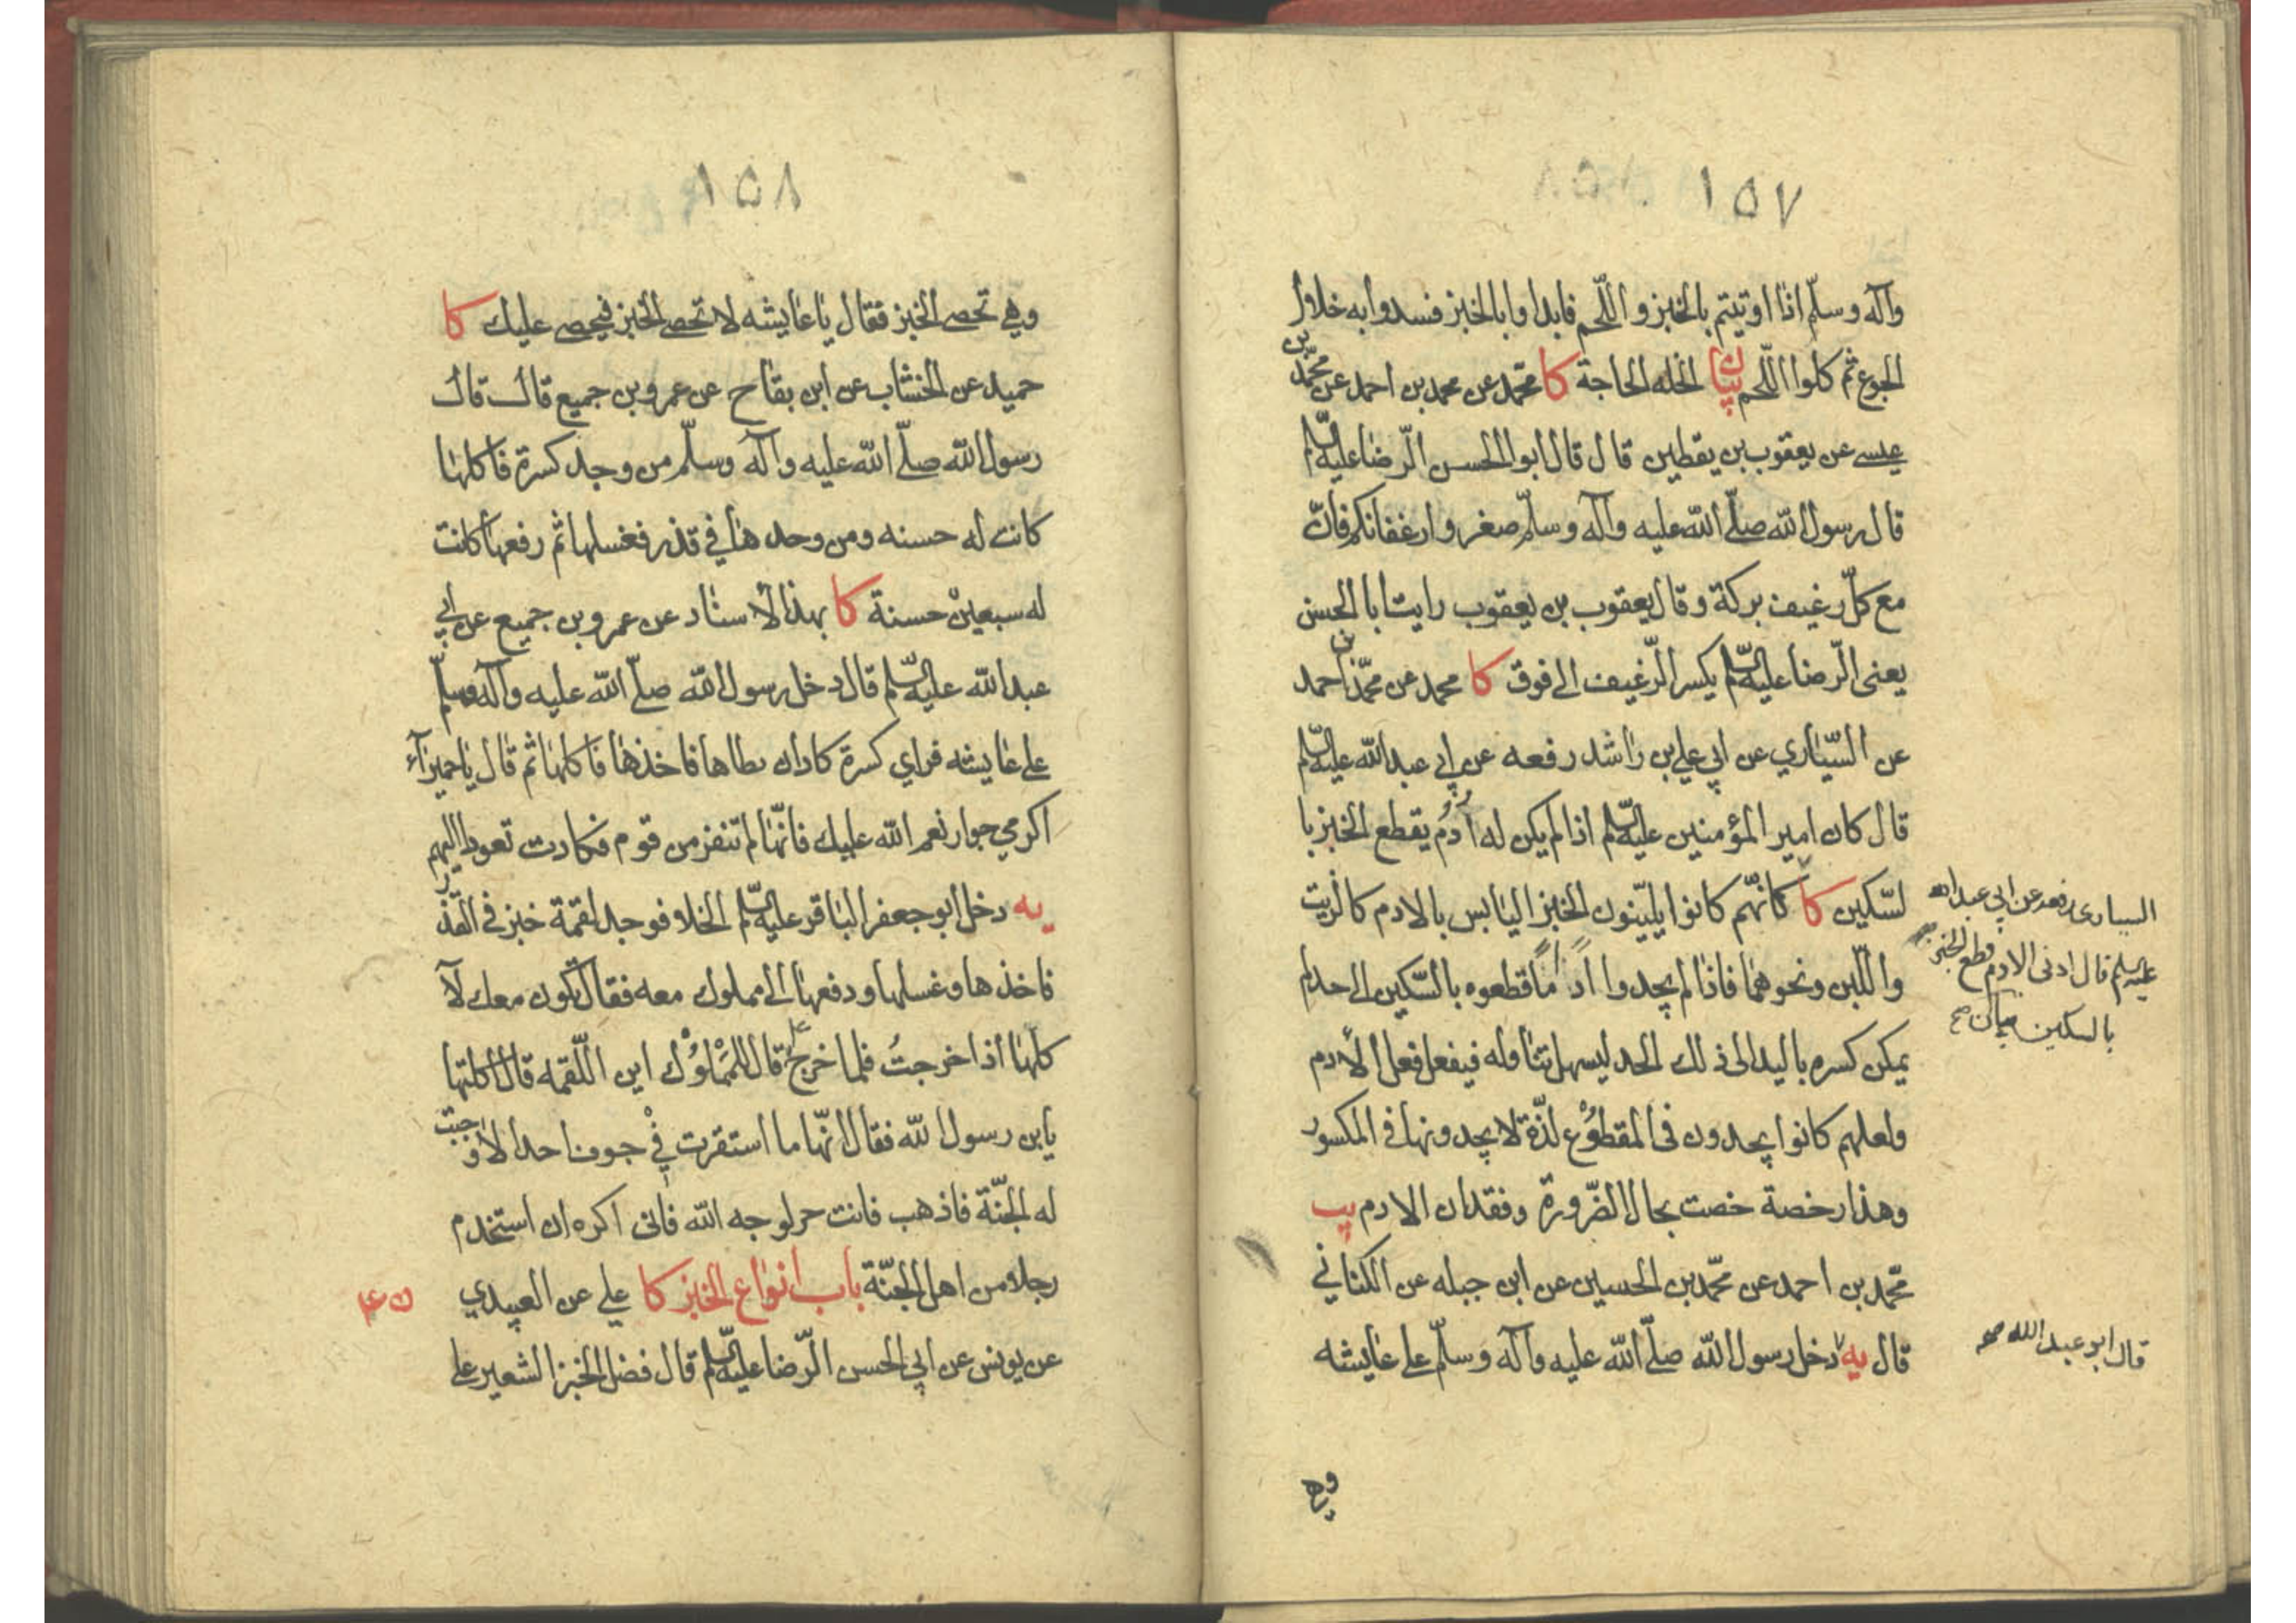 ١٥٧
وآله وسلّم اذا اوتيتم بالخبز واللّحم فابداوا بالخبز فسدوا به خلال
الجوع ثم كلوا اللّحم بيان الخله الحاجة كا محمّد عن محمد بن احمد عن محمّد بن
عيسے عن يعقوب بن يقطين قال قال ابوالحسن الرّضا عليه السّلم
قال رسول الله صلّے الله عليه وآله وسلّم صغروا رغفانكم فانّ
مع كلّ رغيف بركة وقال يعقوب بن يعقوب رايت ابا الحسن
يعنى الرّضا عليه السّلم يكسر الرّغيف الى فوق كا محمد عن محمّد بن احمد
عن السّيّاري عن ابي علي بن راشد رفعه عن ابي عبدالله عليه السّلم
قال كان امير المؤمنين عليه السّلم اذا لم يكن له اُدُم يقطع الخبز با
لسّكين كا كانّهم كانوا يليّنون الخبز اليابس بالادم كالزيت
السيارى رفعه عن ابي عبدالله
عليه السلم قال ادنى الادم قطع الخبز
بالسكين بيان صح
واللّبن ونحوهما فاذا لم يجدوا اداماً قطعوه بالسّكين الى حد لم
يمكن كسره باليد الى ذلك الحد ليسهل تناوله فيفعل فعل الأدم
ولعلهم كانوا يجدون فى المقطوُع لذّة لا يجدونها فى المكسور
وهذا رخصة خصت بحال الضّرورة وفقدان الادم يب
محمّد بن احمد عن محمّد بن الحسين عن ابن جبله عن الكنانى
قال يه دخل رسول الله صلّے الله عليه وآله وسلّم علے عايشه
قال ابو عبدالله صح
وهي
١٥٨
وهي تحصے الخبز فقال يا عايشه لا تحصے الخبز فيحصے عليك كا
حميد عن الخشاب عن ابن بقاح عن عمرو بن جميع قال قال
رسول الله صلّے الله عليه وآله وسلّم من وجد كسرة فاكلها
كانت له حسنه ومن وجدها في قذر فغسلها ثم رفعها كانت
له سبعين حسنة كا بهذا الأسناد عن عمرو بن جميع عن ابي
عبدالله عليه السّلم قال دخل رسول الله صلّے الله عليه وآله وسلم
علے عايشه فراي كسرة كاد ان يطاها فاخذها فاكلها ثم قال يا حميرآء
اكرمي جوار نعم الله عليك فانّها لم تنفر من قوم فكادت تعود اليهم
يه دخل ابو جعفر الباقر عليه السّلم الخلا فوجد لقمة خبز فى القذر
فاخذها وغسلها ودفعها الى مملوك معه فقال تكون معك لآ
كلها اذا خرجتُ فلما خرج ع قال للمَمْلوُك اين اللّقمه قال اكلتها
يابن رسول الله فقال انّها ما استقرت فى جوف احد الا وجبت
له الجنّة فاذهب فانت حر لوجه الله فانى اكره ان استخدم
رجلا من اهل الجنّة باب انواع الخبز كا علي عن العبيدي
عن يونس عن ابي الحسن الرّضا عليه السّلم قال فضل الخبز الشعير على